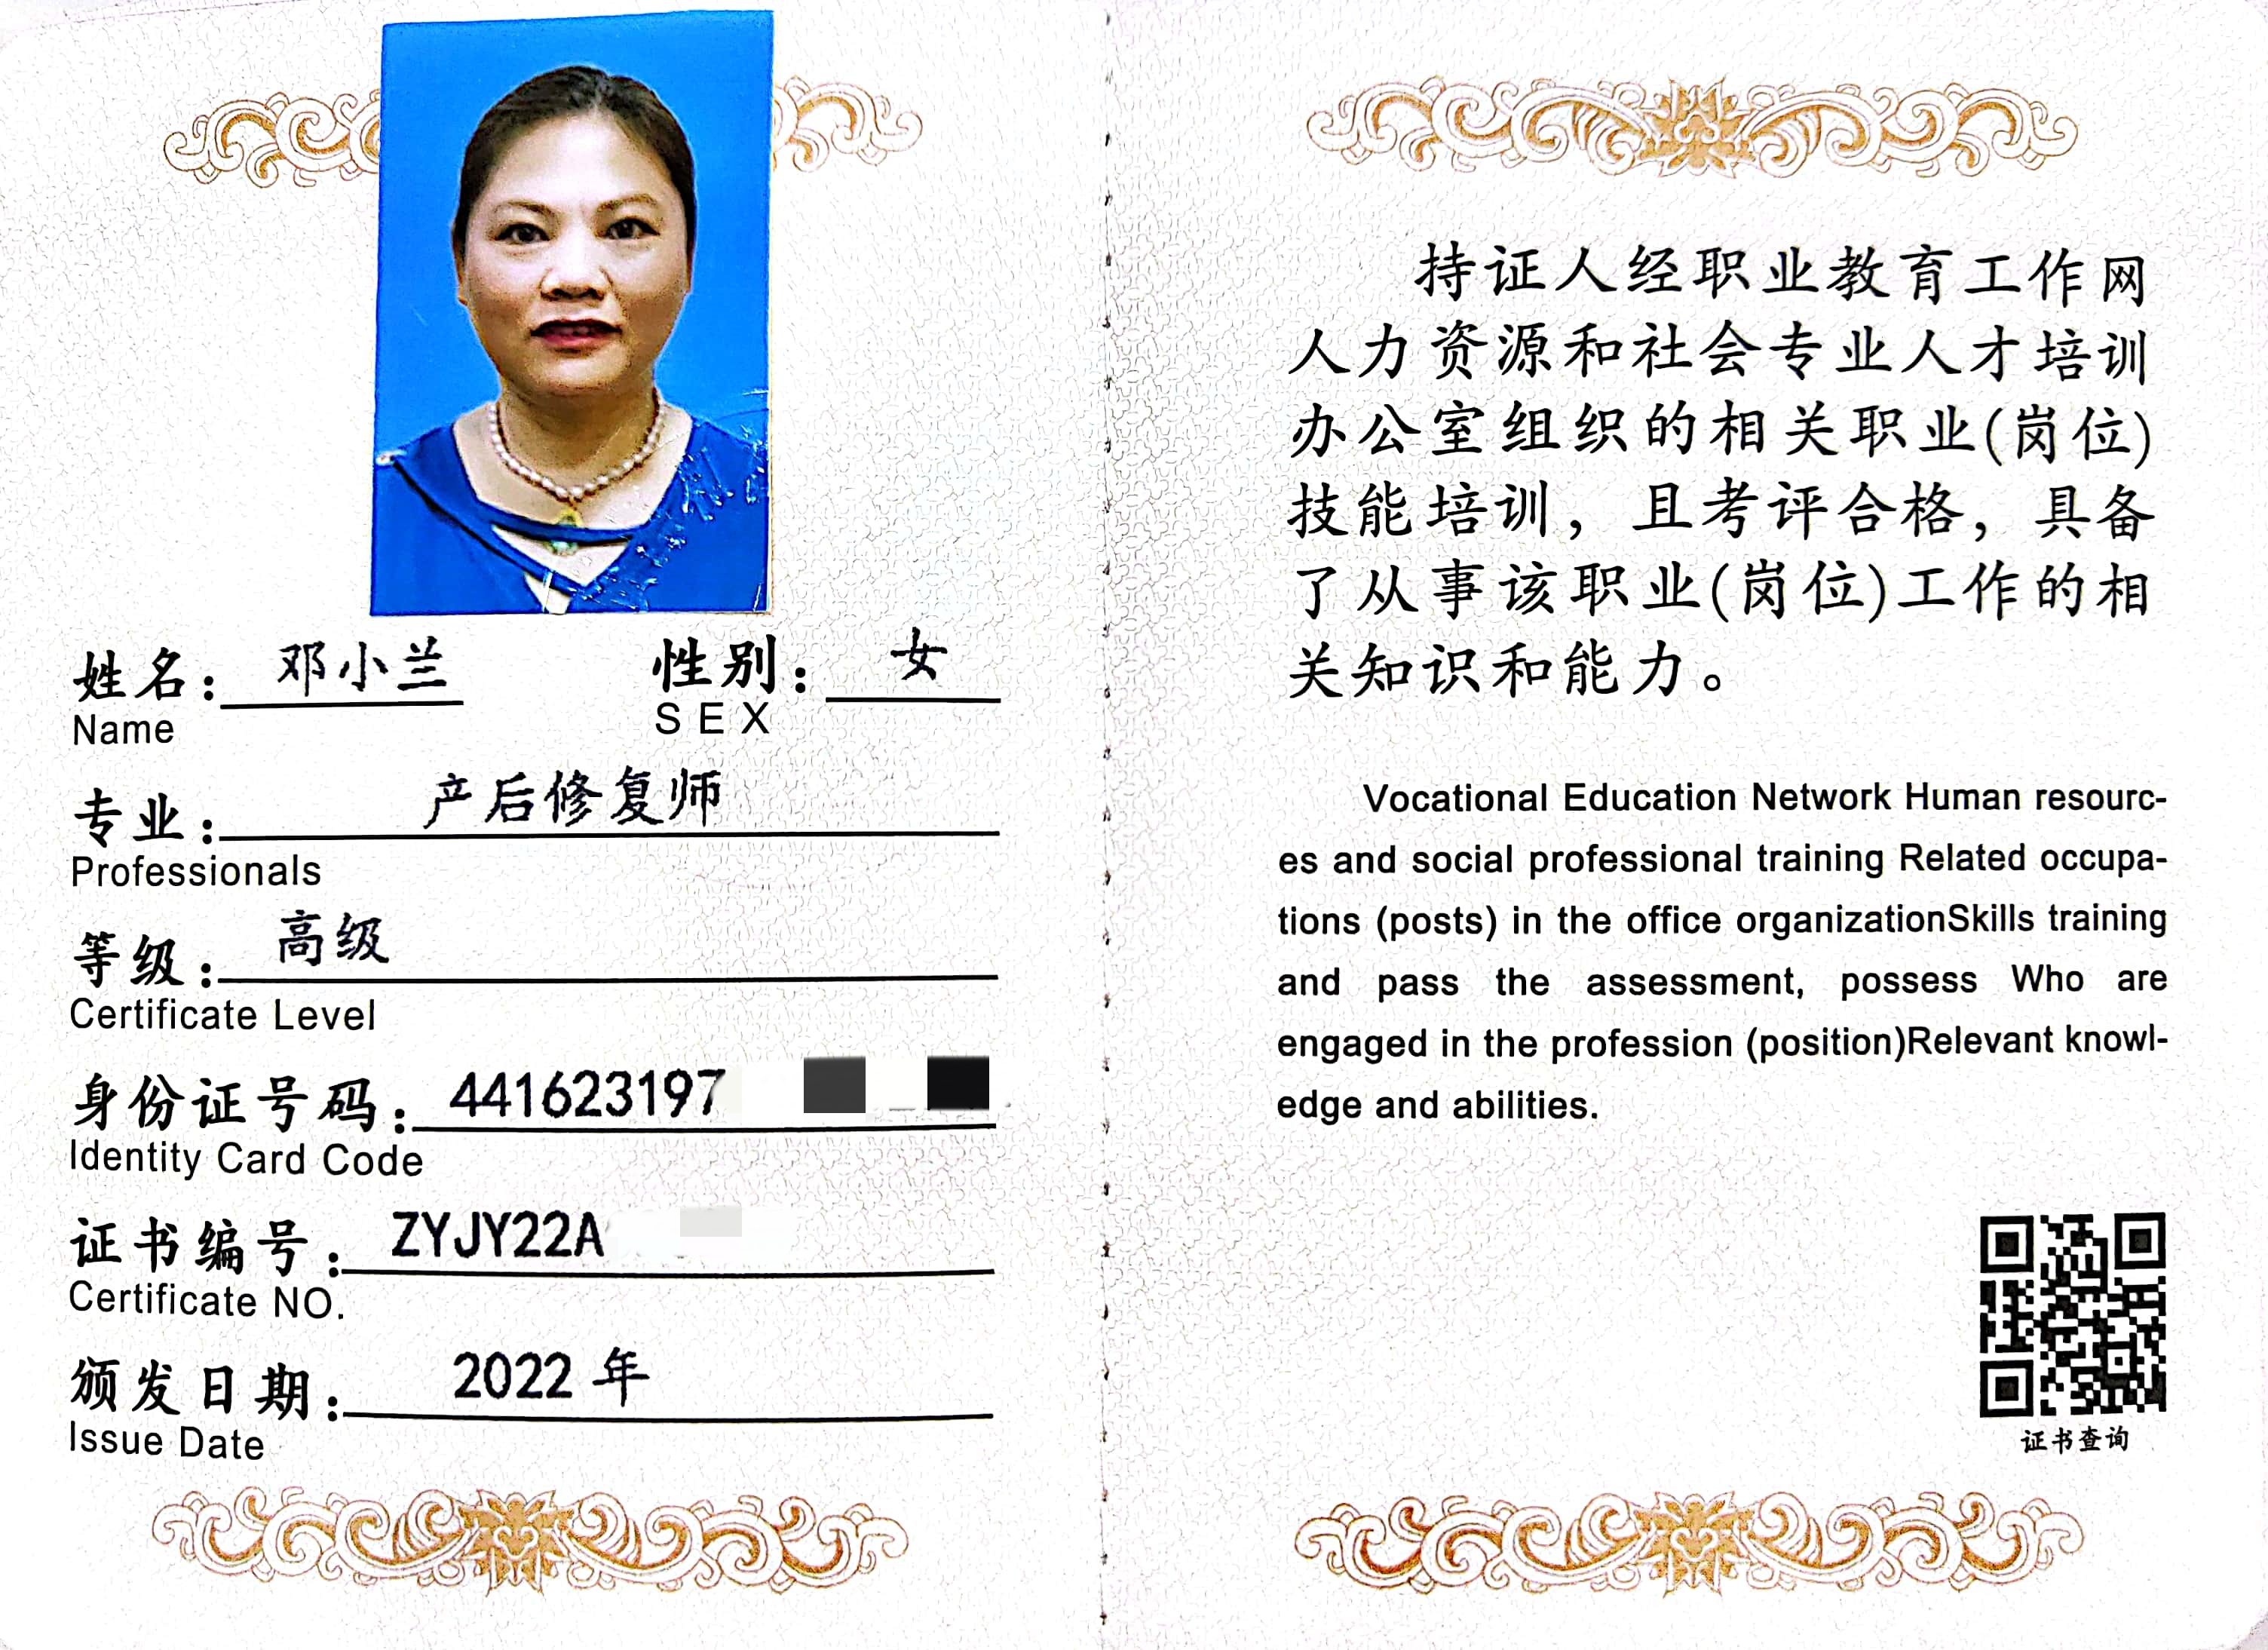 姓名：邓小兰 性别：女
Name SEX
专业：产后修复师
Professionals
等级：高级
Certificate Level
身份证号码：441623197
Identity Card Code
证书编号：ZYJY22A
Certificate NO.
颁发日期：2022 年
Issue Date
持证人经职业教育工作网
人力资源和社会专业人才培训
办公室组织的相关职业(岗位)
技能培训，且考评合格，具备
了从事该职业(岗位)工作的相
关知识和能力。
Vocational Education Network Human resourc-
es and social professional training Related occupa-
tions (posts) in the office organizationSkills training
and pass the assessment, possess Who are
engaged in the profession (position)Relevant knowl-
edge and abilities.
证书查询